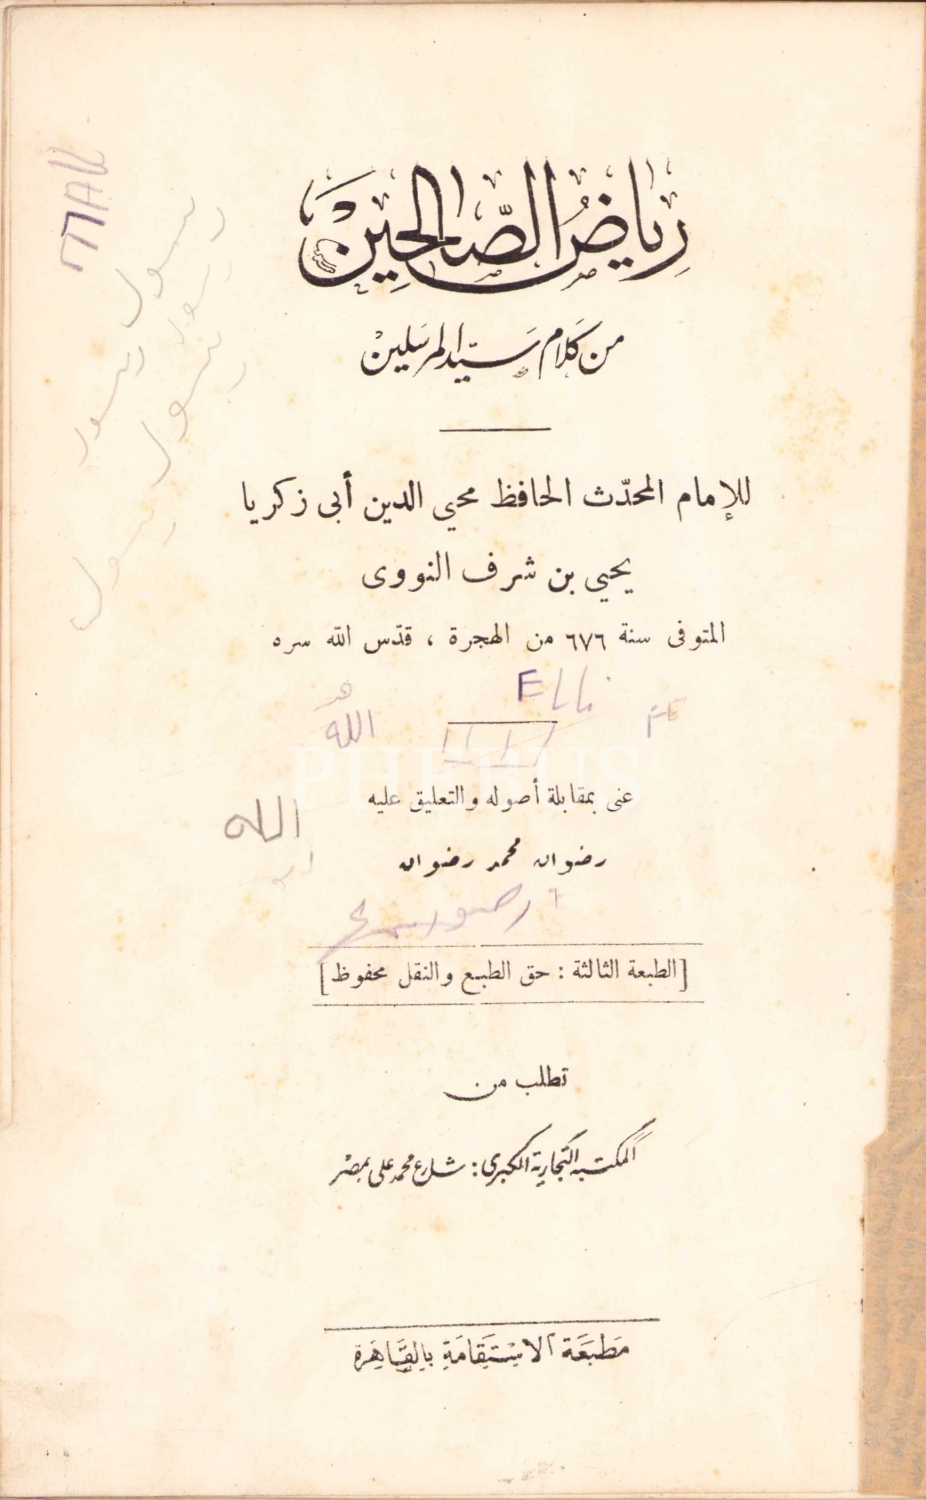 رياضُ الصّالحِينْ
من كَلَام سَيّد المرسَلينْ
للإمام المحدّث الحافظ محيي الدين أبى زكريا
يحيى بن شرف النووى
المتوفى سنة ٦٧٦ من الهجرة ، قدّس الله سره
الله
PHEBUS
عنى بمقابلة أصوله والتعليق عليه
الله
رضوان محمد رضوان
[الطبعة الثالثة : حق الطبع والنقل محفوظ]
تطلب من
المكتبة التجارية الكبرى: شارع محمد على بمصر
مَطبَعَة الاسْتِقَامَةِ بالقَاهِرة